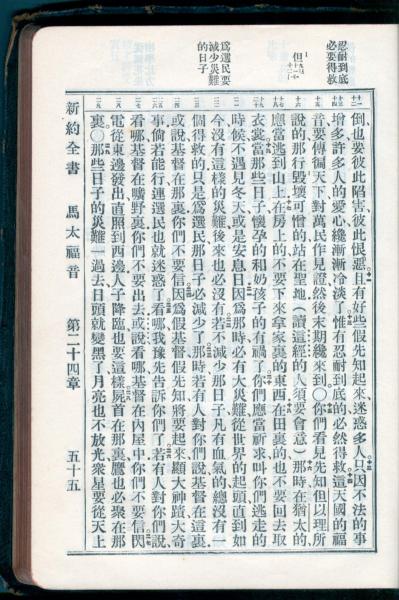 忍耐到底
必要得救
但十一九
十二十
爲選民要
減少災難
的日子
十一
十二
十三
十四
十五
十六
十七
十八
十九
二十
倒也要彼此陷害彼此恨惡且有好些假先知起來迷惑多人只因不法的事
增多許多人的愛心纔漸漸冷淡惟有忍耐到底的必然得救這天國的福
音要傳徧天下對萬民作見證然後末期纔來到○你們看見先知但以理所
說的那行毀壞可憎的站在聖地（讀這經的人須要會意）那時在猶太的
應當逃到山上在房上的不要下來拿家裏的東西在田裏的也不要回去取
衣裳當那些日子懷孕的和奶孩子的有禍了你們應當祈求叫你們逃走的
時候不遇見冬天或是安息日因爲那時必有大災難從世界的起頭直到如
今沒有這樣的災難後來也必沒有若不減少那日子凡有血氣的總沒有一
個得救的只是爲選民那日子必減少了那時若有人對你們說基督在這裏
或說基督在那裏你們不要信因爲假基督假先知將要起來顯大神蹟大奇
事倘若能行連選民也就迷惑了看哪我豫先告訴你們了若有人對你們說
看哪基督在曠野裏你們不要出去或說看哪基督在內屋中你們不要信閃
電從東邊發出直照到西邊人子降臨也要這樣屍首在那裏鷹也必聚在那
裏○那些日子的災難一過去日頭就變黑了月亮也不放光衆星要從天上
新約全書　馬太福音　第二十四章　五十五